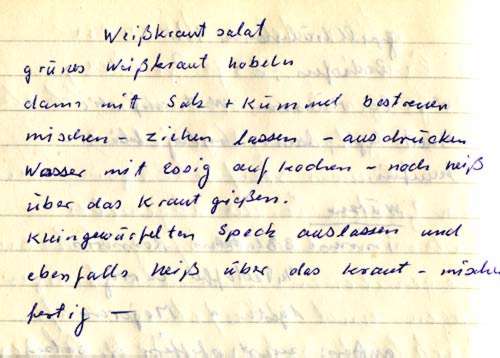 Weißkraut salat
grünes Weißkraut hobeln
dann mit Salz + Kümmel bestreuen
mischen - ziehen lassen - ausdrücken
Wasser mit Essig aufkochen - noch heiß
über das Kraut gießen.
kleingewürfelten Speck auslassen und
ebenfalls heiß über das Kraut - mischen
fertig —